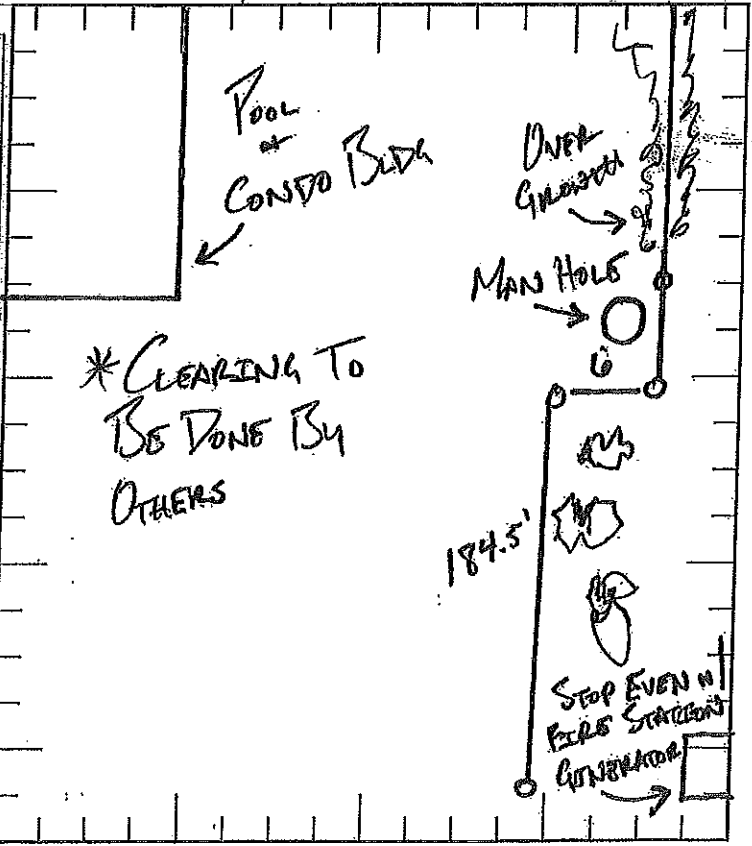 POOL
at
CONDO BLDG
OVER
GROWTH
MAN HOLE
6
* CLEARING TO
BE DONE BY
OTHERS
184.5'
STOP EVEN W/
FIRE STATION
GENERATOR